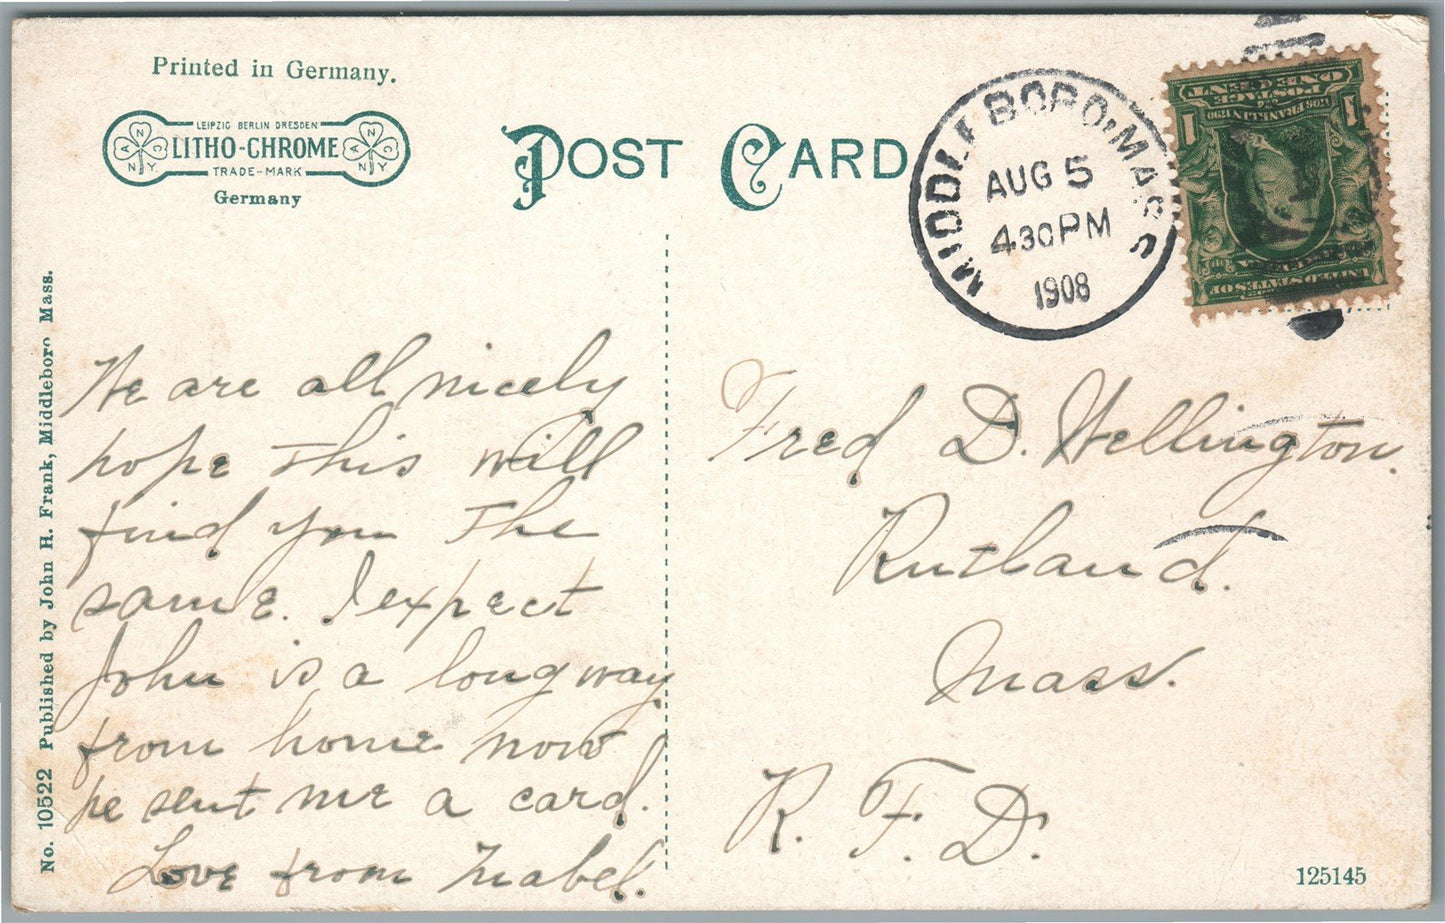 Printed in Germany.
LEIPZIG BERLIN DRESDEN
N A C N.Y. LITHO-CHROME N A C N.Y.
TRADE-MARK
Germany
POST CARD
MIDDLEBORO, MASS
AUG 5
430 PM
1908
1 1
POSTAGE
ONE CENT
1706 FRANKLIN 1790
SERIES 1902
UNITED STATES OF
No. 10522 Published by John H. Frank, Middleboro Mass.
We are all nicely
hope this will
find you the
same. I expect
John is a long way
from home now
he sent me a card.
Love from Mabel.
Fred D. Wellington.
Rutland.
Mass.
R. F. D.
125145